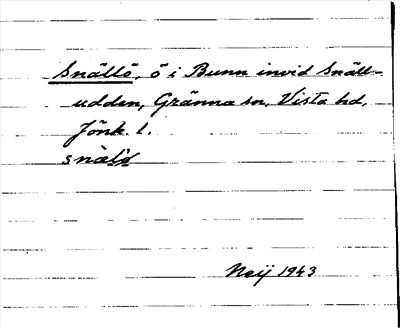 Snällö, ö i Bunn invid Snäll-
udden, Gränna sn, Vista hd,
Jönk. l.
Neij 1943